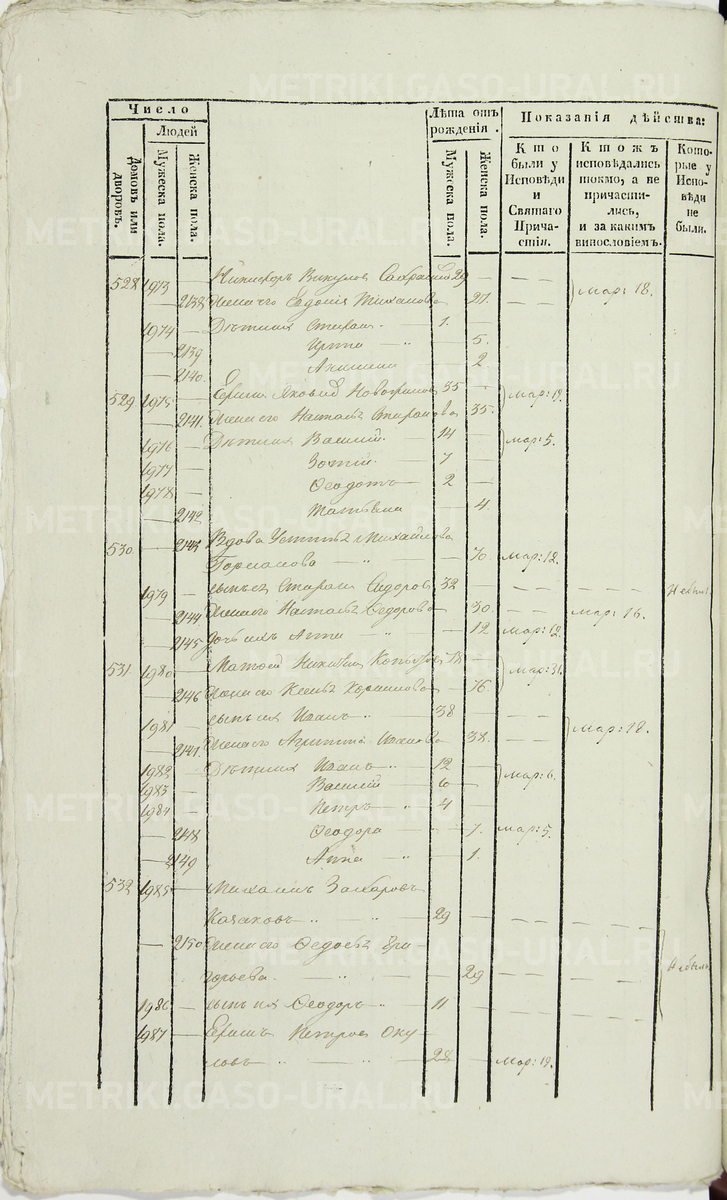 Число
Людей
Домовъ или дворовъ.
Мужеска пола.
Женска пола.
Лѣта отъ рожденія.
Мужеска пола.
Женска пола.
Показанія дѣйства:
Кто были у Исповѣди и Святаго Причастія.
Ктожъ исповѣдались токмо, а не причастились, и за какимъ винословіемъ.
Которые у Исповѣди не были.
528 1973 — Никифоръ Викуловъ 29 — — —
— 2138 Жена его Евдокія 27. — — мар: 18.
1974 — Дѣти ихъ Стефанъ — 1.
— 2139 — " — 5.
— 2140 2
529 1975 — Яковлевъ 35 — мар: 19.
— 2141. Жена его Настасья 35.
1976 — Дѣти ихъ Василій — 14 — мар: 5.
1977 — Зотій — 7 —
1978 — Ѳеодотъ — 2 —
— 2142 Татьяна — 4.
530 — 2143 Вдова Устинья Михайлова
— " — 70. мар: 12.
1979 — сынъ ея Стефанъ Сидоровъ 32 — — — — — Не былъ.
— 2144 Жена его Настасья Ѳедорова — 30. — — мар: 16.
— 2145 Дочь ихъ Анна — " — 12 мар: 12.
531 1980 — Матвей Никитинъ 78 — мар: 31.
— 2146 Жена его — 76.
1981 — сынъ ихъ Иванъ — " 38 — — —
— 2147 Жена его Агрипина Иванова 38. — — мар: 18.
1982 — Дѣти ихъ Иванъ " 12 — мар: 6.
1983 — Василій " 6 —
1984 — Петръ — " 4 —
— 2148 Ѳеодора — 7. мар: 5.
— 2149 Анна — " — 1.
532 1985 — Михаилъ Захаровъ
Казаковъ " — " — 29 — — —
— 2150 Жена его Ѳедосья Гри
горьева — " — 29 — — — — Не были
1986 — сынъ их Ѳеодоръ — " 11 — — —
1987 — Петровъ Оку
ловъ — " — " — 28 — мар: 19.
METRIKI.GASO-URAL.RU